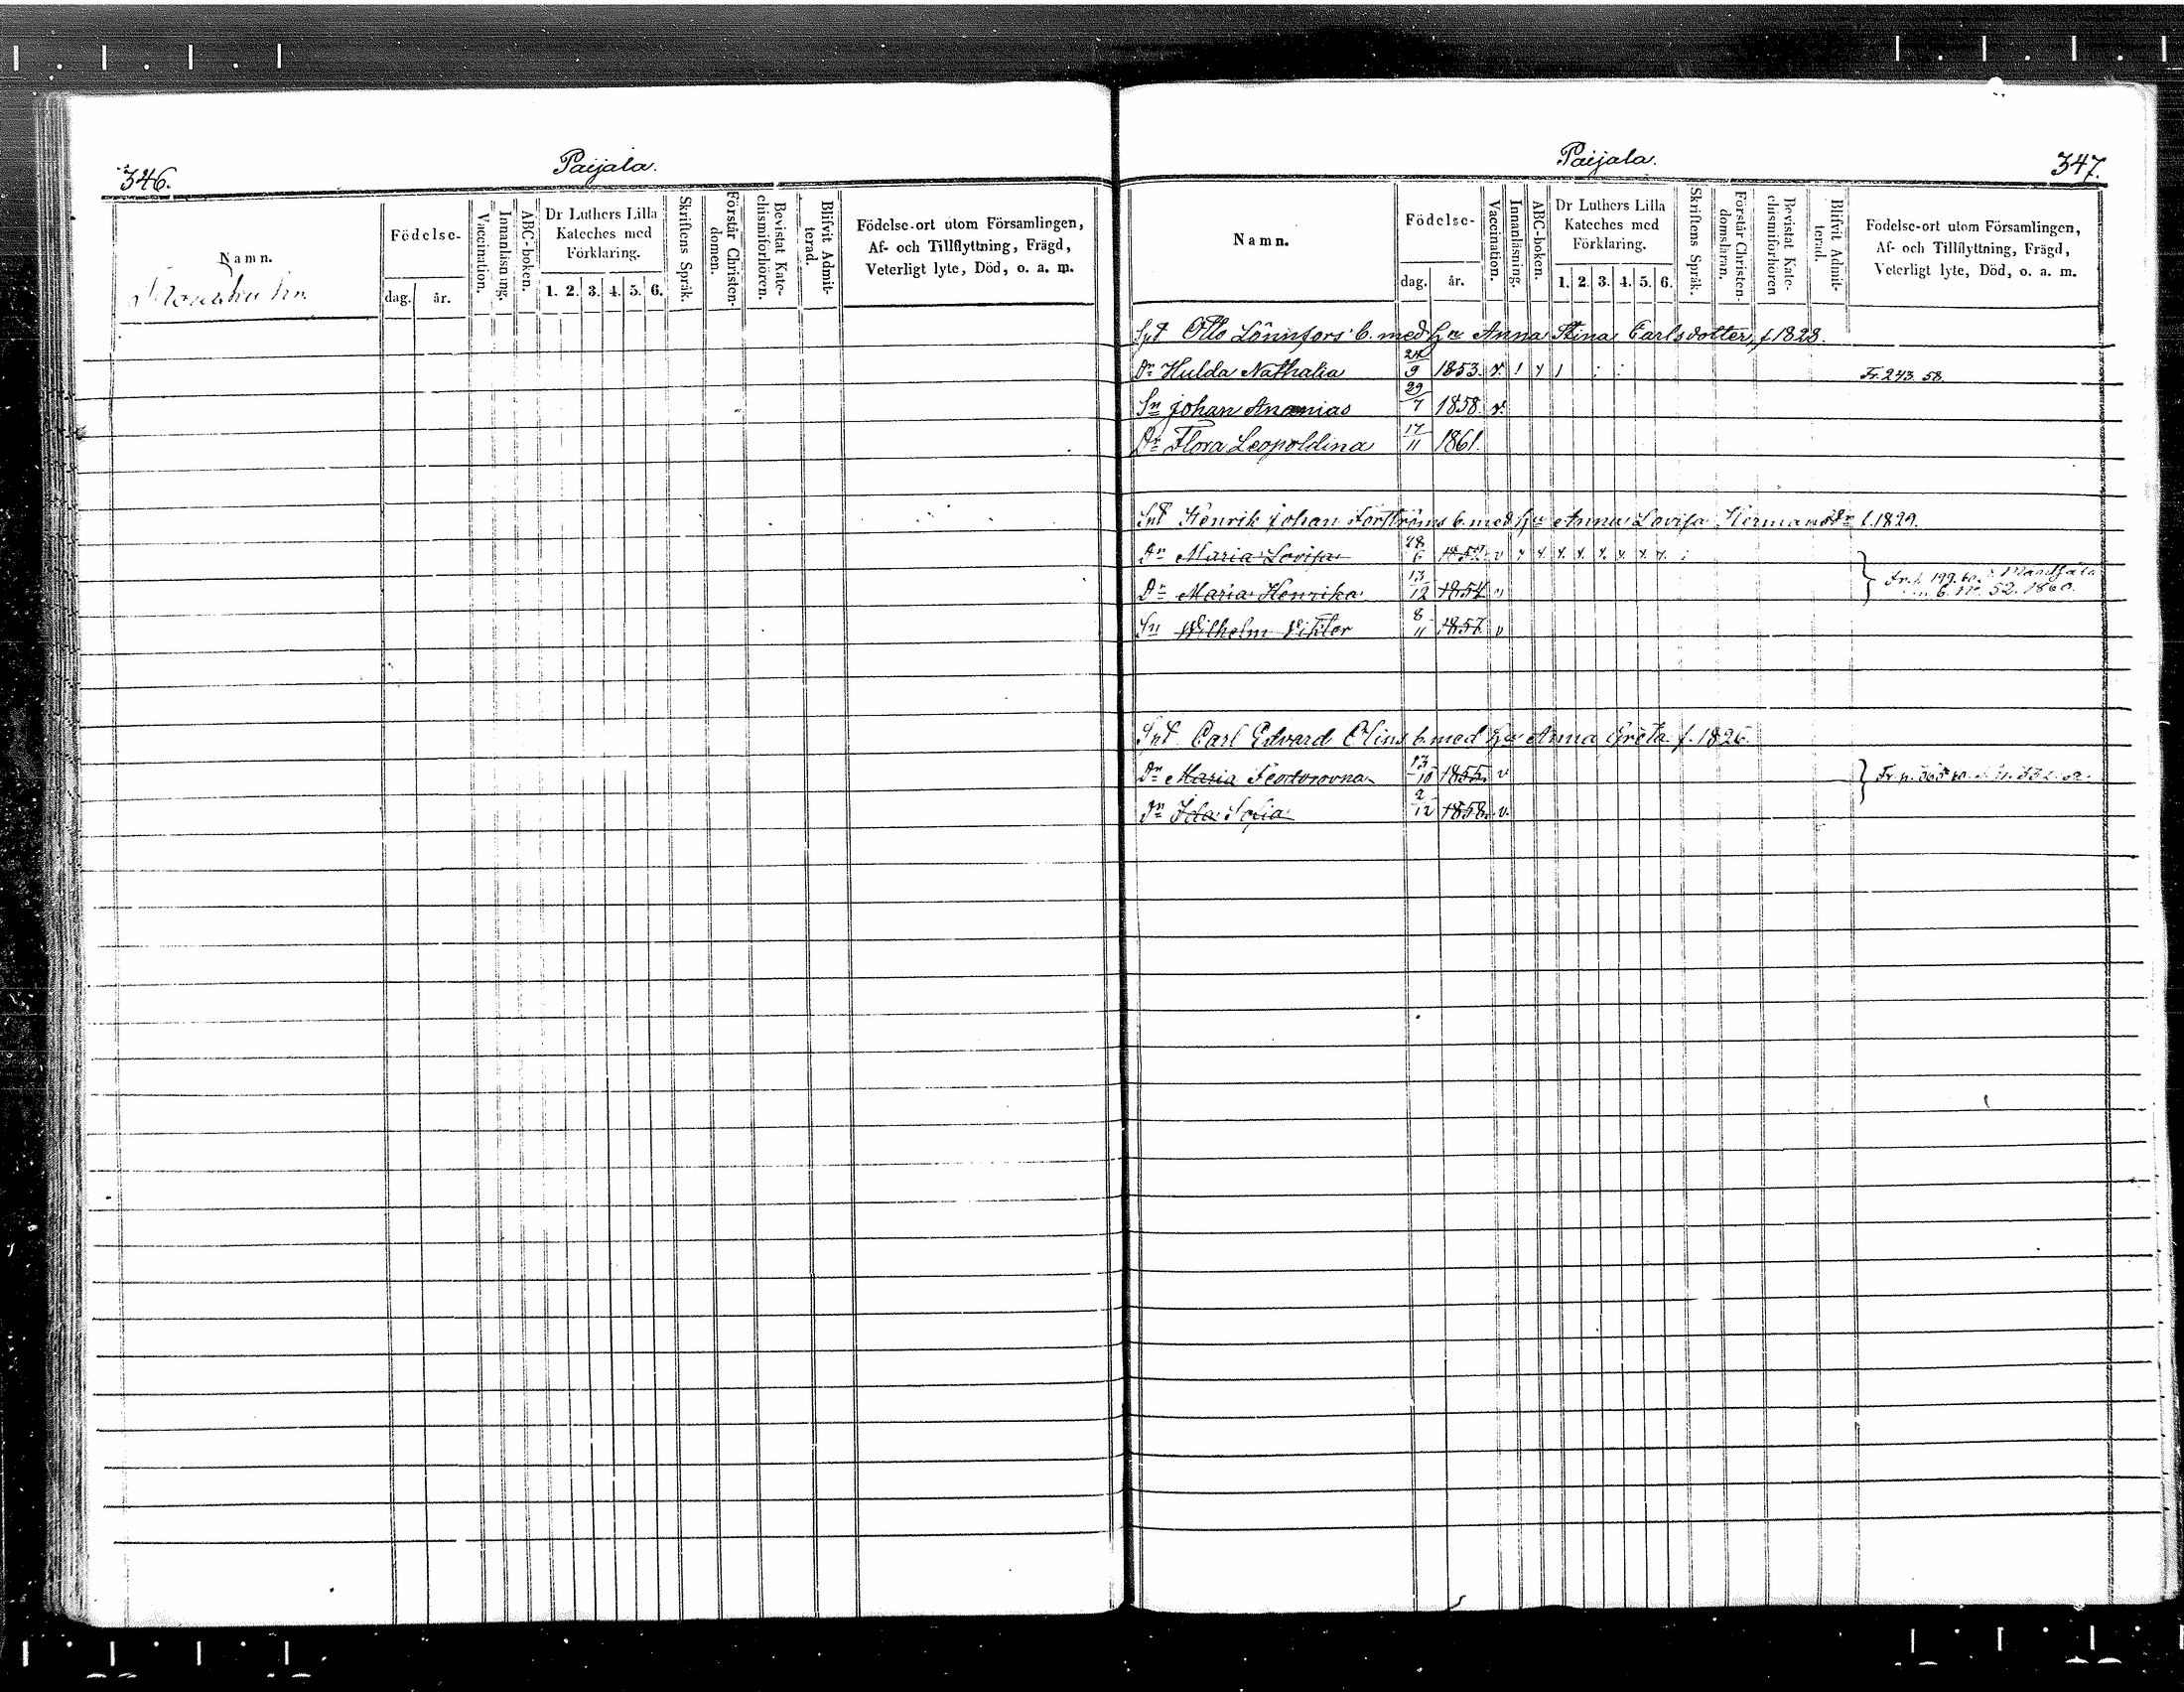 346.
Paijala.
Namn.
Födelse-
dag. år.
Vaccination.
Innanläsning.
ABC-boken.
Dr Luthers Lilla Kateches med Förklaring.
1. 2. 3. 4. 5. 6.
Skriftens Språk.
Förstår Christen-domen.
Bevistat Kate-chismiförhören.
Blifvit Admit-terad.
Födelse-ort utom Församlingen,
Af- och Tillflyttning, Frägd,
Veterligt lyte, Död, o. a. m.
Paijala.
347.
Namn.
Födelse-
dag. år.
Vaccination.
Innanläsning.
ABC-boken.
Dr Luthers Lilla Kateches med Förklaring.
1. 2. 3. 4. 5. 6.
Skriftens Språk.
Förstår Christen-domsläran.
Bevistat Kate-chismiförhören
Blifvit Admit-terad.
Födelse-ort utom Församlingen,
Af- och Tillflyttning, Frägd,
Veterligt lyte, Död, o. a. m.
Otto Lönnfors b. med Anna Stina Carlsdotter, f. 1828.
Dr Hulda Nathalia 24/9 1853. Fr. 243. 58.
Sn Johan Ananias 29/7 1858. v.
Dr Flora Leopoldina 17/11 1861.
Henrik Johan Forströms b. med Anna Lovisa Hermansdr f. 1829.
Dr Maria Lovisa 28
Dr Maria Henrika 13/12 1854
Sn Wilhelm Viktor 8/11 1857. v
Carl Edvard Olins b. med Anna Greta f. 1826.
Dr Maria Feodorovna 13/10 1855. v
Dr Ida Sofia 2/12 1858. v.